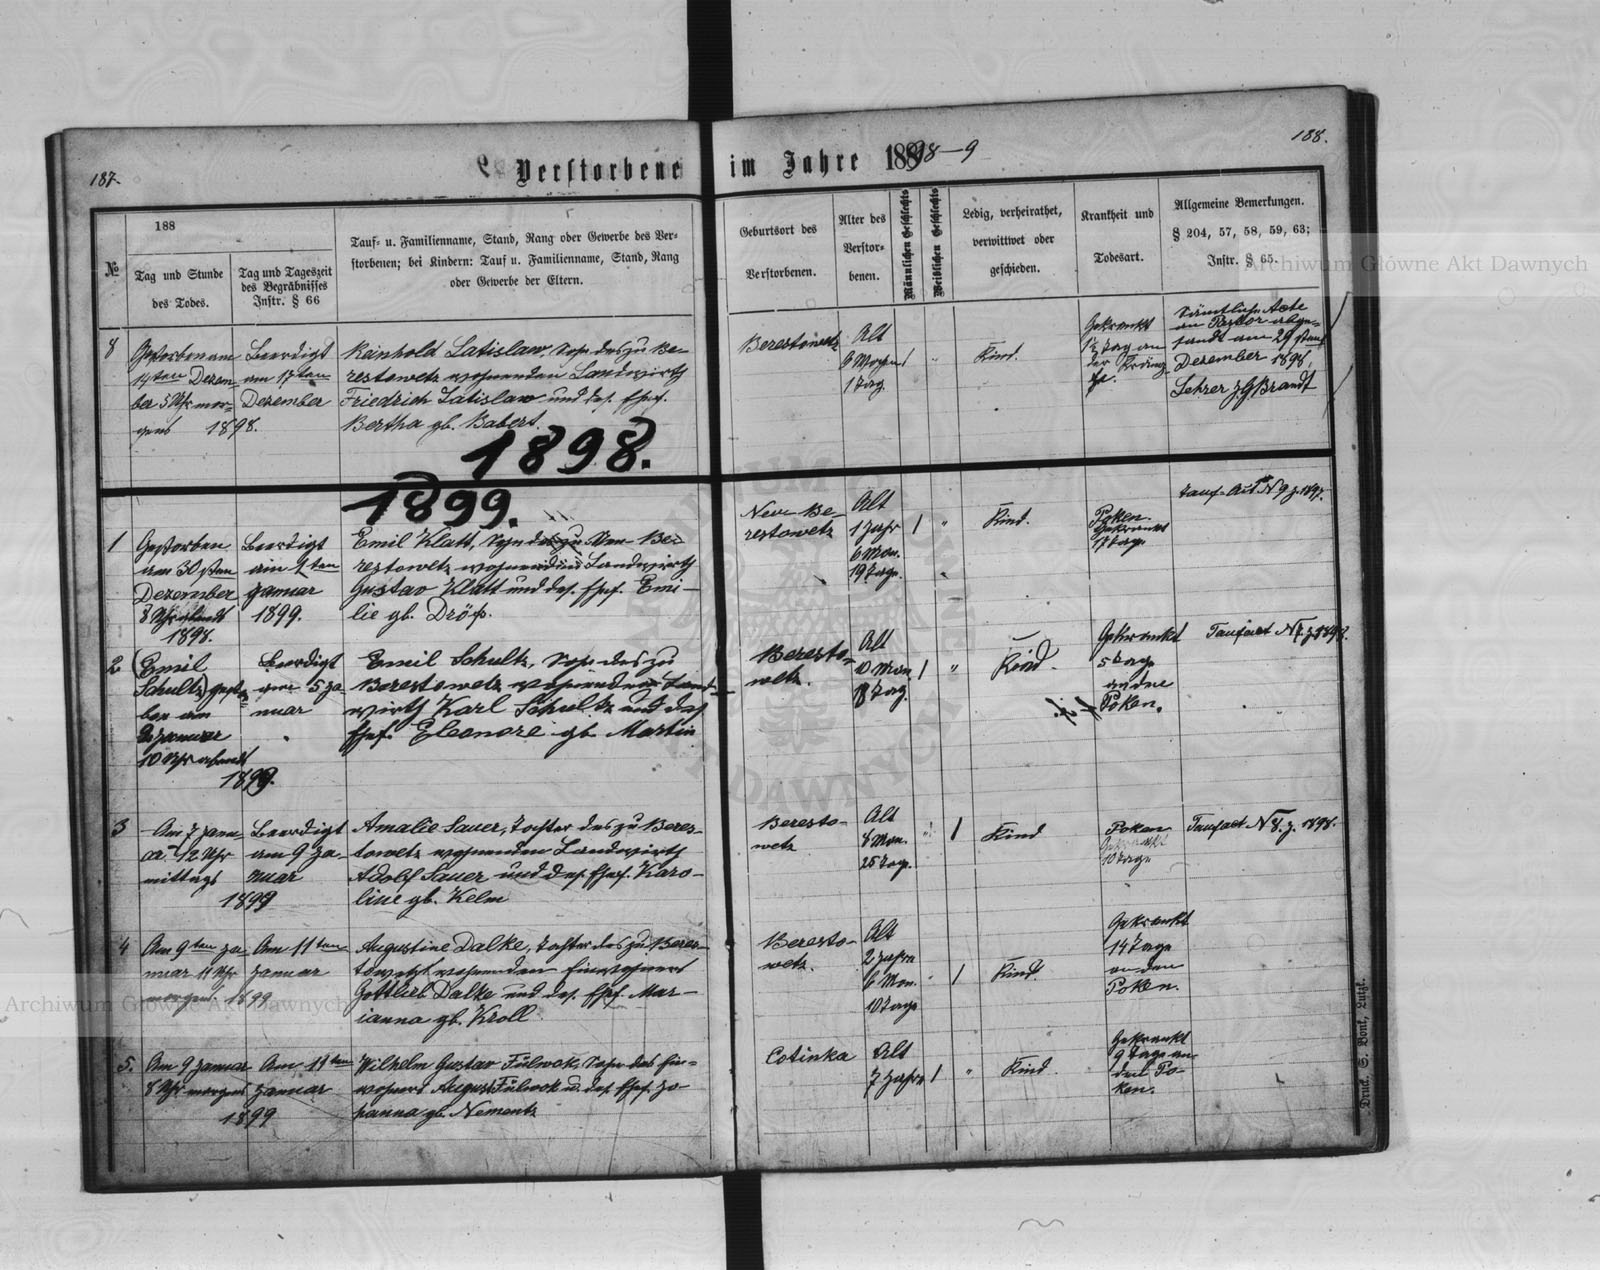 187.
188.
Verstorbene im Jahre 1898-9
188
№
Tag und Stunde
des Todes.
Tag und Tageszeit
des Begräbnisses
Instr. § 66
Tauf- u. Familienname, Stand, Rang oder Gewerbe des Ver-
storbenen; bei Kindern: Tauf u. Familienname, Stand, Rang
oder Gewerbe der Eltern.
Geburtsort des
Verstorbenen.
Alter des
Verstor-
benen.
Männlichen Geschlechts
Weiblichen Geschlechts
Ledig, verheirathet,
verwittwet oder
geschieden.
Krankheit und
Todesart.
Allgemeine Bemerkungen.
§ 204, 57, 58, 59, 63;
Instr. § 65.
8
Gestorben am
14ten Dezem
ber 5 Uhr mor-
gens 1898.
Beerdigt
am 17ten
Dezember
Reinhold Latislaw, Sohn des zu Be-
restowetz wohnenden Landwirth
Friedrich Latislaw und des. Ehef.
Bertha gb. Babert.
Berestowetz
Alt
6 Wochen
1 Tag.
1
"
Kind.
Gekrankt
1½ Tag an
der
Sämtliche Acte
an Pastor abge-
sandt am 29 sten
Dezember 1898.
Lehrer J. G. Brandt
1898.
1899.
1
Gestorben
am 30sten
Dezember
8 Uhr abends
1898.
Beerdigt
am 1ten
Januar
1899.
Emil Klatt, Sohn des zu Neu Be-
restowetz wohnenden Landwirth
Gustav Klatt und des. Ehef. Emi-
lie gb. Dröß.
Neu Be-
restowetz
Alt
1 Jahr
6 Mon.
19 Tage.
1
"
Kind.
Poken.
Gekrankt
17 Tage
Tauf-Act N 9 z. 1897.
2
Emil
Schultz gestor
ben am
2 Januar
10 Uhr abends
1899.
Beerdigt
am 5 Ja
nuar
Emil Schultz, Sohn des zu
Berestowetz wohnenden Land-
wirth Karl Schultz und des
Ehef. Eleonore gb. Martin
Beresto-
wetz.
Alt
10 Mon.
18 Tag.
1
"
Kind.
Gekrankt
5 Tage
an den
Poken.
Taufact N 7. z. 1898.
3
Am 7 Janu
ar 12 Uhr
mittags
1899
Beerdigt
am 9 Ja-
nuar
Amalie Sauer, Tochter des zu Beres-
towetz wohnenden Landwirth
Adolf Sauer und des. Ehef. Karo-
line gb. Kelm
Beresto-
wetz
Alt
6 Mon.
25 Tage.
"
1
Kind
Poken
Gekrankt
10 Tage
Taufact N 8. z. 1898.
4
Am 9ten Ja
nuar 11 Uhr
morgens 1899
Am 11ten
Januar
Augustine Dalke, Tochter des zu Beres-
towetz wohnenden Einwohners
Gottlieb Dalke und des. Ehef. Mar-
ianna gb. Kroll
Beresto-
wetz.
Alt
2 Jahre
6 Mon.
10 Tage
"
1
Kind.
Gekrankt
14 Tage
an den
Poken.
5.
Am 9 Januar
8 Uhr morgens
1899
Am 11ten
Januar
Wilhelm Gustav Fülwok, Sohn des Ein-
wohners August Fülwok u. des. Ehef. Jo-
hanna gb. Nementz
Cotinka
Alt
7 Jahre
1
"
Kind.
Gekrankt
9 Tage an
den Po-
ken.
Druck. S. Bonk, Lutzk.
Archiwum Główne Akt Dawnych
Archiwum Główne Akt Dawnych